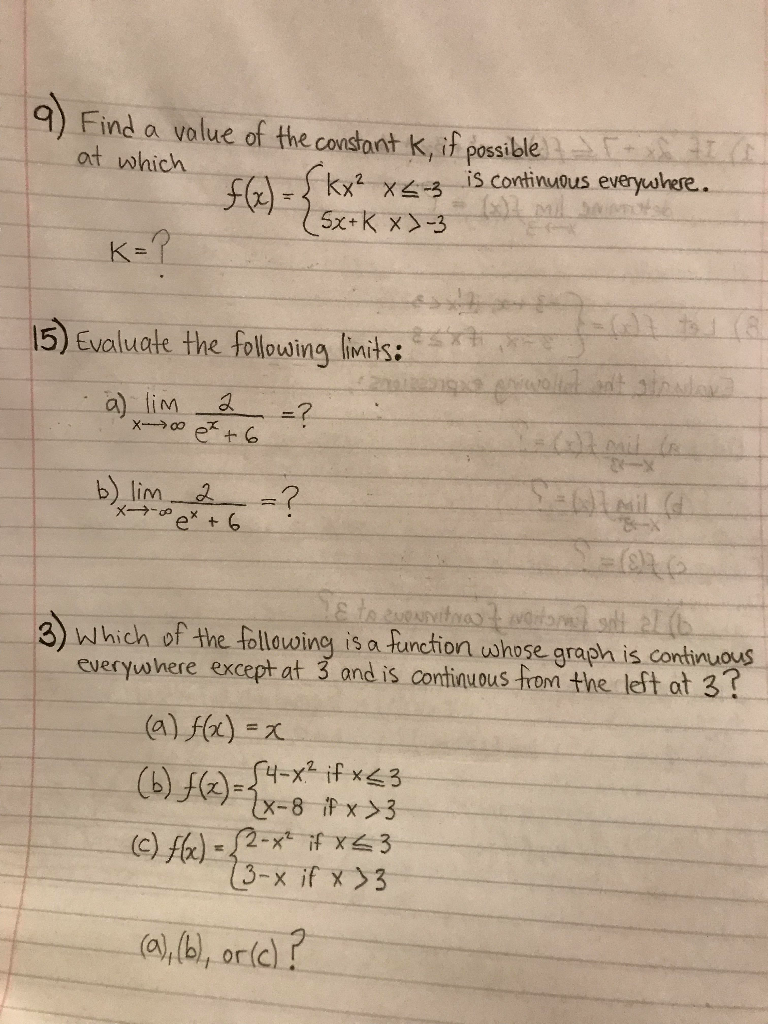 9) Find a value of the constant K, if possible
at which f(x) = { Kx² x ≤ -3 is continuous everywhere.
5x+K x > -3
K = ?
15) Evaluate the following limits:
a) lim x→∞ 2/(eˣ + 6) = ?
b) lim x→-∞ 2/(eˣ + 6) = ?
3) Which of the following is a function whose graph is continuous
everywhere except at 3 and is continuous from the left at 3?
(a) f(x) = x
(b) f(x) = { 4-x² if x ≤ 3
x-8 if x > 3
(c) f(x) = { 2-x² if x ≤ 3
3-x if x > 3
(a), (b), or (c) ?